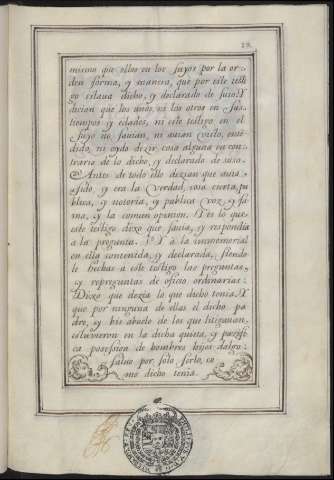 19.
mismo que ellos en los suyos por la or-
den forma, y manera, que por este testi
go estava dicho, y declarado de suso. Y
dician que los unos, ni los otros en sus
tiempos y edades, ni este testigo en el
suyo no savian, ni avian visto, enten
dido, ni oydo dezir, cosa alguna en con-
trario de lo dicho, y declarado de suso.
Antes de todo ello dezian que avia
sido, y era la Verdad, cosa cierta, pu
blica, y notoria, y publica voz y fa
ma, y la comun opinion. Y es lo que
este testigo dixo que savia, y respondia
a la pregunta. Y a la immemorial
en ella contenida, y declarada, siendo
le hechas a este testigo las preguntas,
y repreguntas de oficio ordinarias:
Dixo que dezia lo que dicho tenia. Y
que por ninguna de ellas el dicho pa
dre, y bis abuelo de los que litigavan,
estuvieron en la dicha quieta, y pacifi
ca posession de hombres hijos dalgo:
salvo por solo serlo, co
mo dicho tenia.